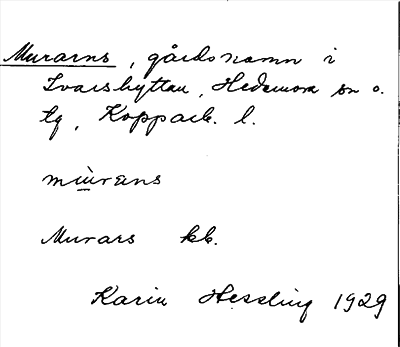 Murarns, gårdsnamn i
Ivarshyttan, Hedemora sn o.
tg, Kopparb. l.
mùrɐns
Murars kb.
Karin Hessling 1929